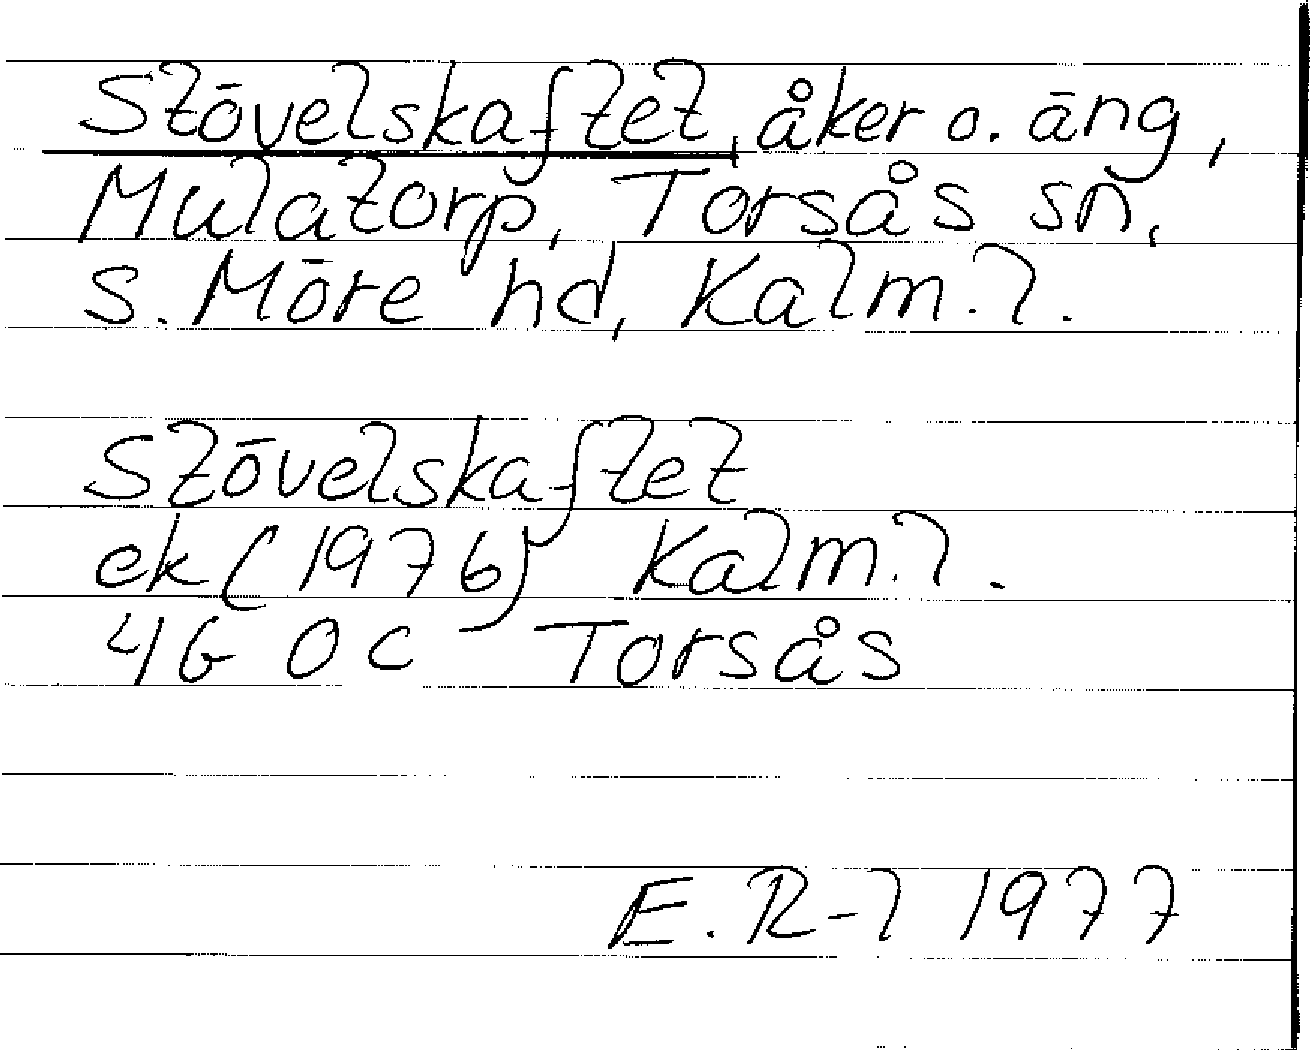 Stövelskaftet, åker o. äng,
Mulatorp, Torsås sn,
s. Möre hd, Kalm. l.
Stövelskaftet
ek (1976) Kalm. l.
4G 0c Torsås
E. R-l 1977